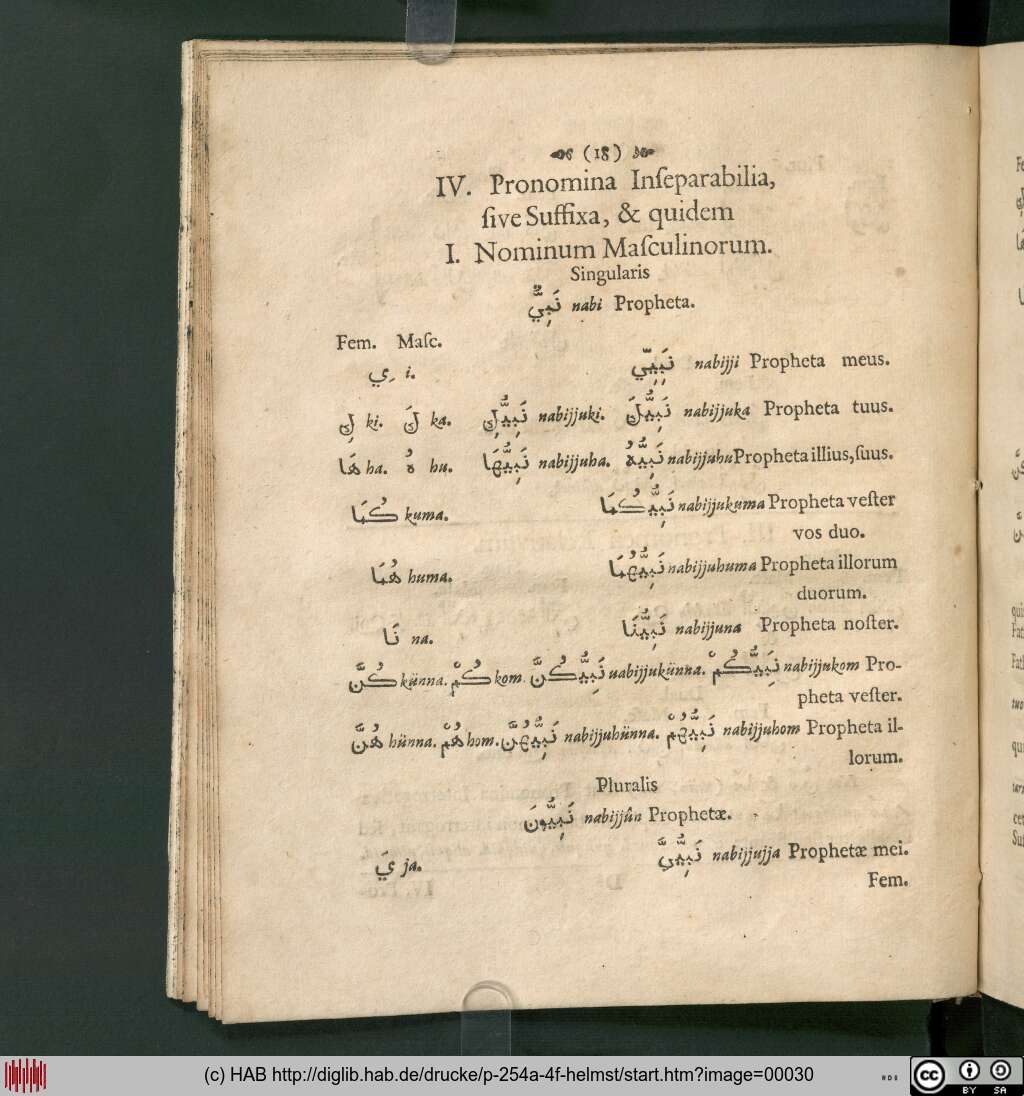 (18)
IV. Pronomina Inſeparabilia,
ſive Suffixa, & quidem
I. Nominum Maſculinorum.
Singularis
نَبِيٌّ nabi Propheta.
Fem. Maſc.
ـِي i. نَبِيِّي nabijji Propheta meus.
كِ ki. كَ ka. نَبِيُّكِ nabijjuki. نَبِيُّكَ nabijjuka Propheta tuus.
هَا ha. هُ hu. نَبِيُّهَا nabijjuha. نَبِيُّهُ nabijjuhu Propheta illius, ſuus.
كُمَا kuma. نَبِيُّكُمَا nabijjukuma Propheta veſter
vos duo.
هُمَا huma. نَبِيُّهُمَا nabijjuhuma Propheta illorum
duorum.
نَا na. نَبِيُّنَا nabijjuna Propheta noſter.
كُنَّ künna. كُمْ kom. نَبِيُّكُنَّ uabijjukünna. نَبِيُّكُمْ nabijjukom Pro-
pheta veſter.
هُنَّ hünna. هُمْ hom. نَبِيُّهُنَّ nabijjuhünna. نَبِيُّهُمْ nabijjuhom Propheta il-
lorum.
Pluralis
نَبِيُّونَ nabijjûn Prophetæ.
يَ ja. نَبِيُّيَّ nabijjujja Prophetæ mei.
Fem.
(c) HAB http://diglib.hab.de/drucke/p-254a-4f-helmst/start.htm?image=00030
cc BY SA